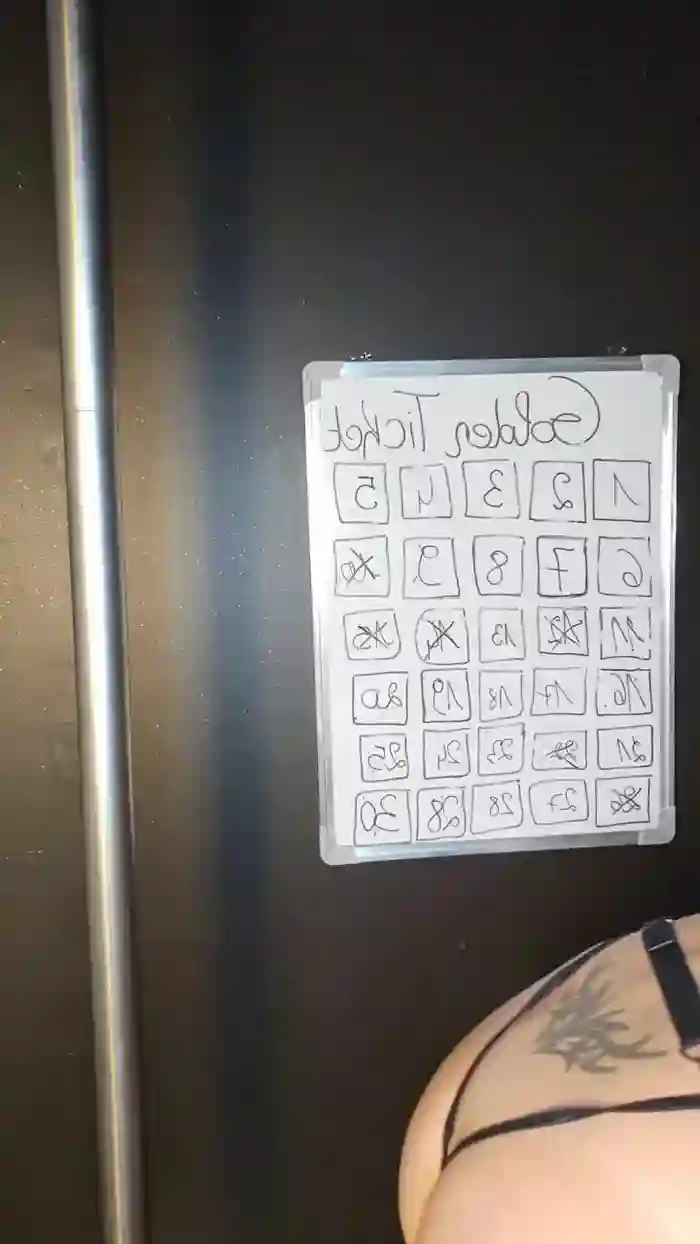 Golden Ticket
1 2 3 4 5
6 7 8 9 10
11 12 13 14 15
16. 17 18 19 20
21 22 23 24 25
26 27 28 28 30